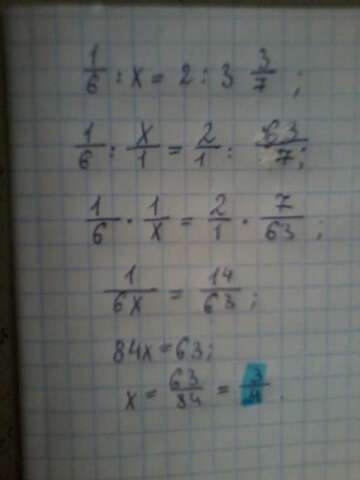 1/6 : x = 2 : 3 3/7 ;
1/6 : x/1 = 2/1 : 63/7 ;
1/6 · 1/x = 2/1 · 7/63 ;
1/6x = 14/63 ;
84x = 63 ;
x = 63/84 = 3/4 .